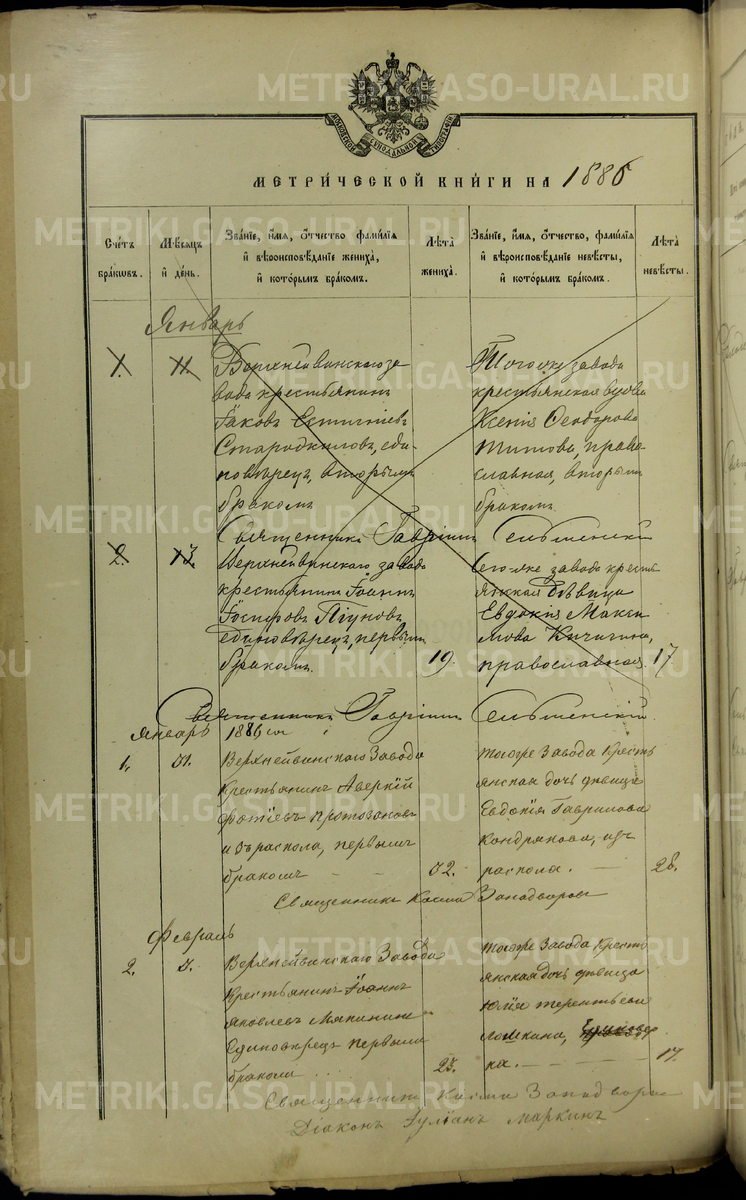 METRIKI.GASO-URAL.RU
МОСКОВСКОЙ СѴНОДАЛЬНОЙ ТИПОГРАФІИ
МЕТРИ́ЧЕСКОЙ КНИ́ГИ НА 1886
Сче́тъ бра́кѡвъ.
Мѣ́сѧцъ и҆ де́нь.
Зва́нїе, и҆́мѧ, Ѻ҆́тчество фами́лїѧ и҆ вѣроисповѣ́данїе жениха̀, и҆ кото́рымъ бра́комъ.
Лѣ́та жениха̀.
Зва́нїе, и҆́мѧ, Ѻ҆́тчество, фами́лїѧ и҆ вѣроисповѣ́данїе невѣ́сты, и҆ кото́рымъ бра́комъ.
Лѣ́та невѣ́сты.
Январь
1. 11.
Верхнейвинскаго за
вода крестьянин
Іаковъ
Стародкиловъ, еди-
новѣрец, вторымъ
бракомъ
Того же завода
крестьянская вдова
Ксенія Ѳеодорова
Титова, право
славная, вторымъ
бракомъ.
Священникъ Гавріилъ
2. 13.
Верхнейвинскаго завода
крестьянинъ Іоаннъ
Іосифовъ Пѣуновъ
единовѣрец, первымъ
бракомъ. 19.
Сего же завода крестья
янская дѣвица
Евдокія Макси
мова Кичигина,
православная. 17.
Священникъ Гавріилъ
Январь 1886 год
1. 31.
Верхнейвинскаго Завода
Крестьянинъ Аверкій
Фотіевъ Протозановъ
изъ раскола, первымъ
бракомъ - - 32.
тогоже Завода Кресть
янская дочь дѣвица
Евдокія Гаврилова
Кондрякова, изъ
раскола. - 28.
Священникъ Косма Западворовъ
Февраль
2. 3.
Верхнейвинскаго Завода
Крестьянинъ Іоаннъ
Яковлевъ Мякининъ
Единовѣрецъ первымъ
бракомъ 25.
тогоже Завода Кресть
янская дочь дѣвица
Юлія Терентьева
ка. - 17.
Священникъ Косма Западворов
Діаконъ Іуліанъ Маркинъ